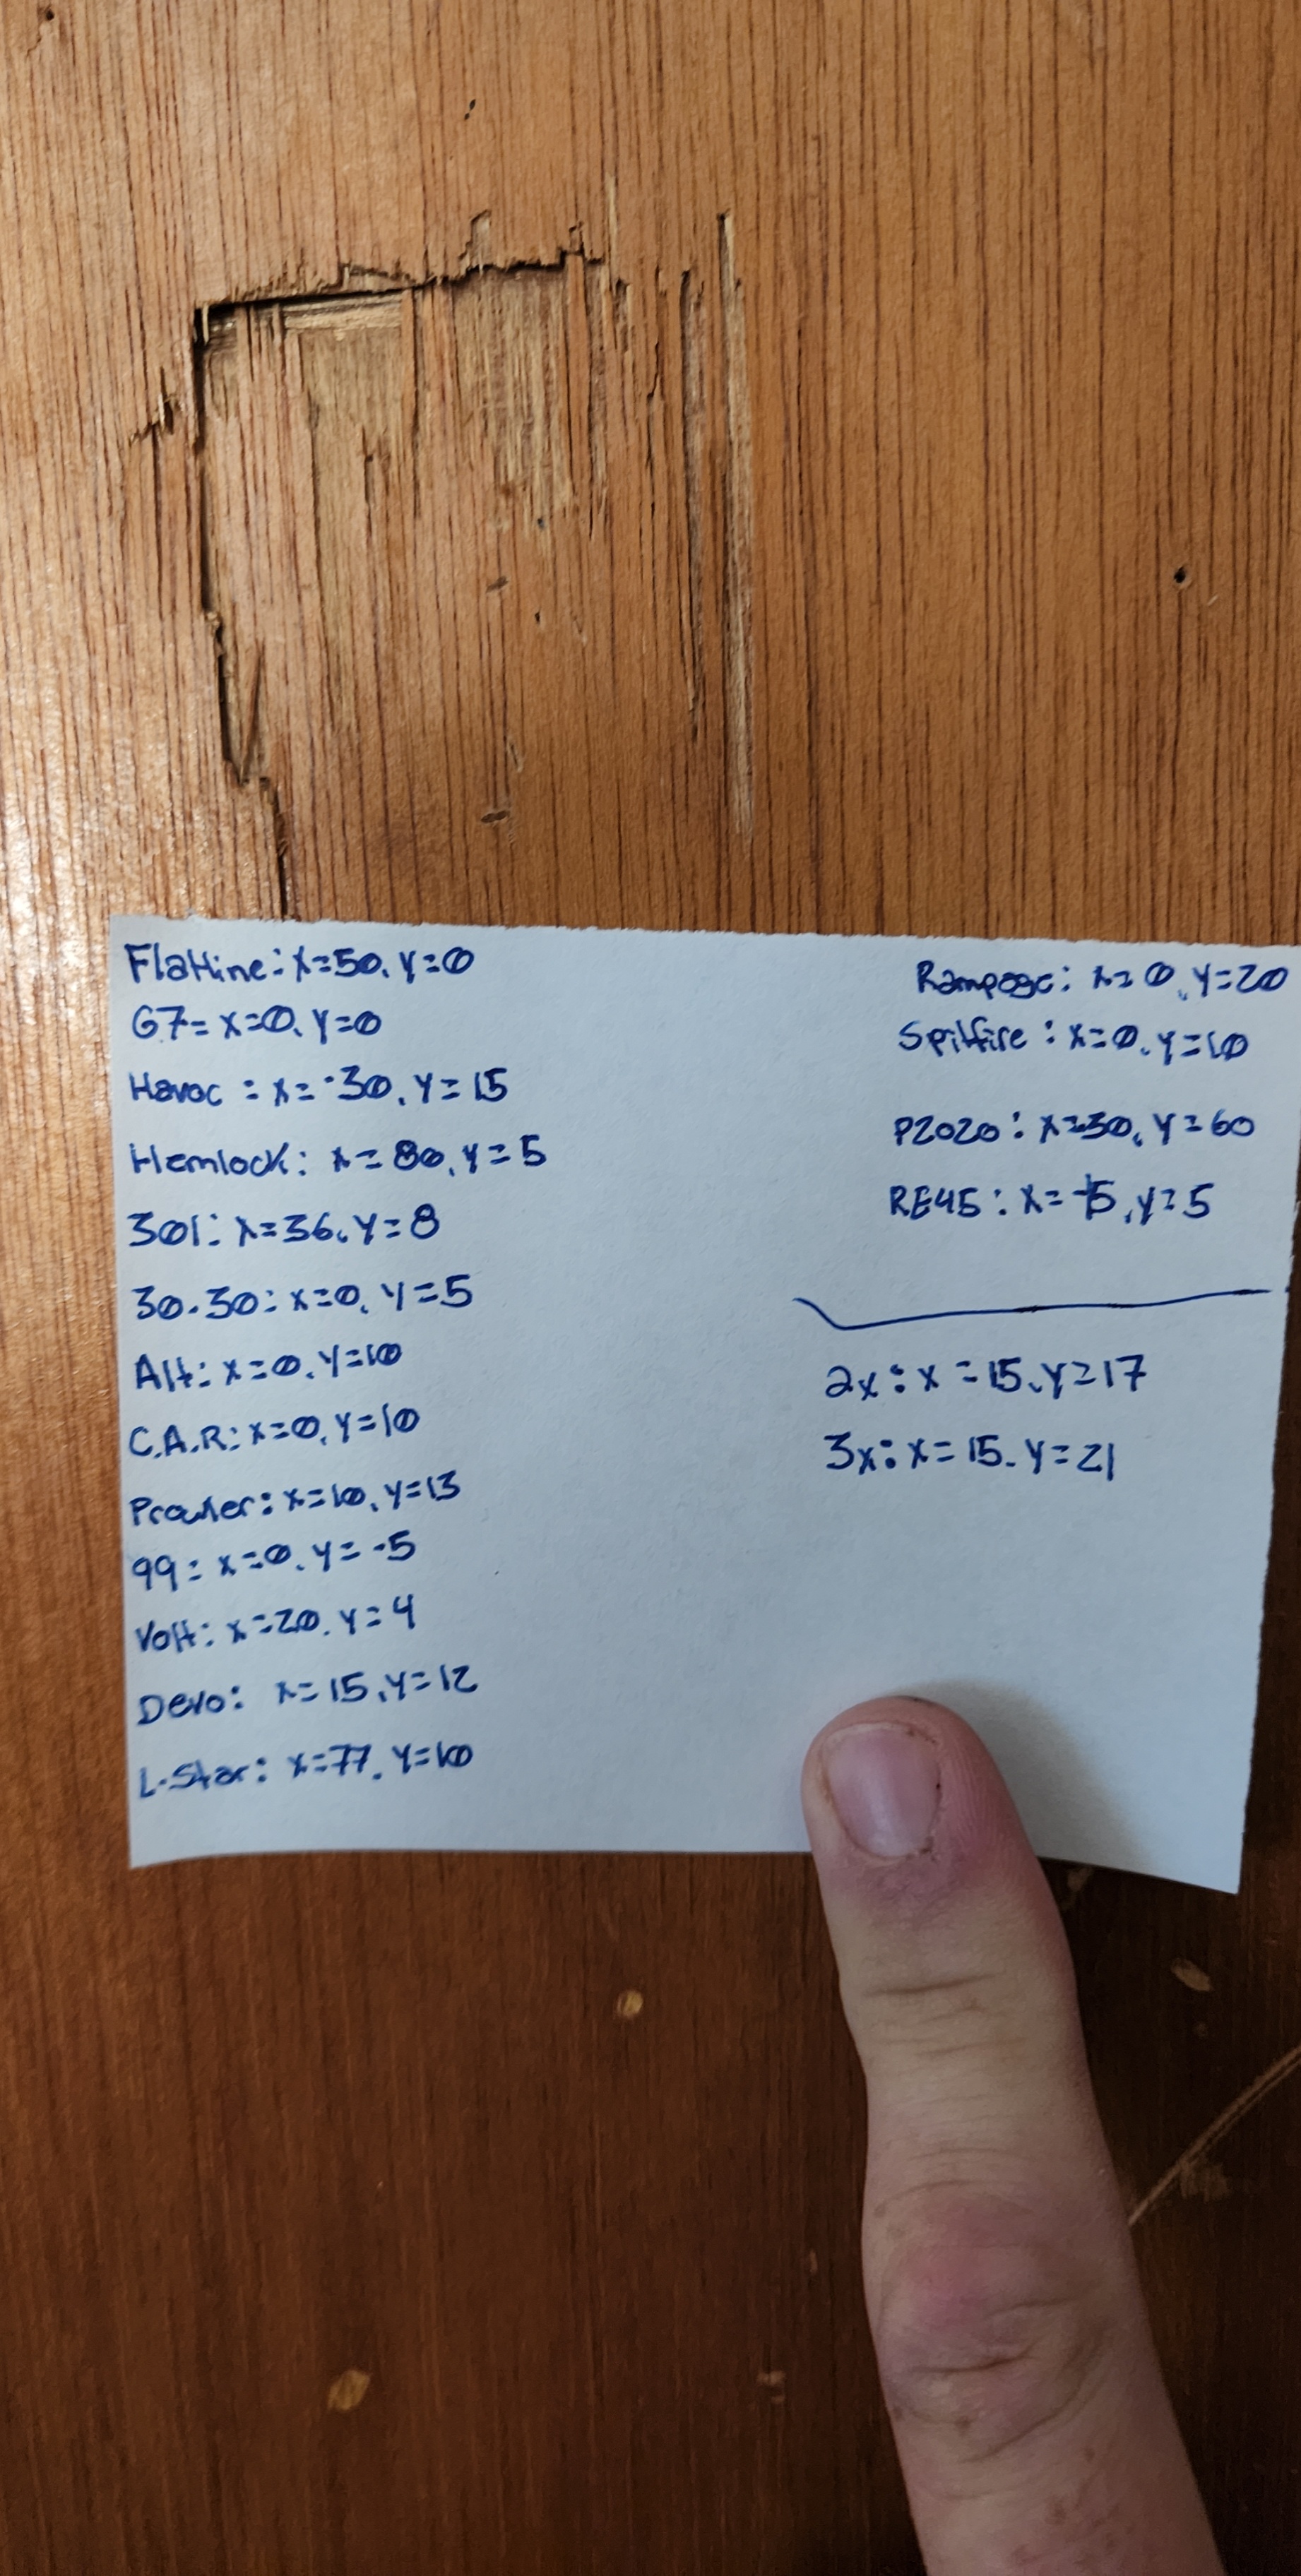 Flatline: x=50, y=0
G7= x=0, y=0
Havoc = x=-30, y=15
Hemlock: x=80, y=5
301: x=36, y=8
30-30: x=0, y=5
Alt: x=0, y=10
C.A.R: x=0, y=10
Prowler: x=10, y=13
99: x=0, y=-5
Volt: x=20, y=4
Devo: x=15, y=12
L-Star: x=77, y=10
Rampage: x=0, y=20
Spitfire: x=0, y=10
P2020: x=30, y=60
RE45: x= , y=5
2x: x=15, y=17
3x: x=15, y=21